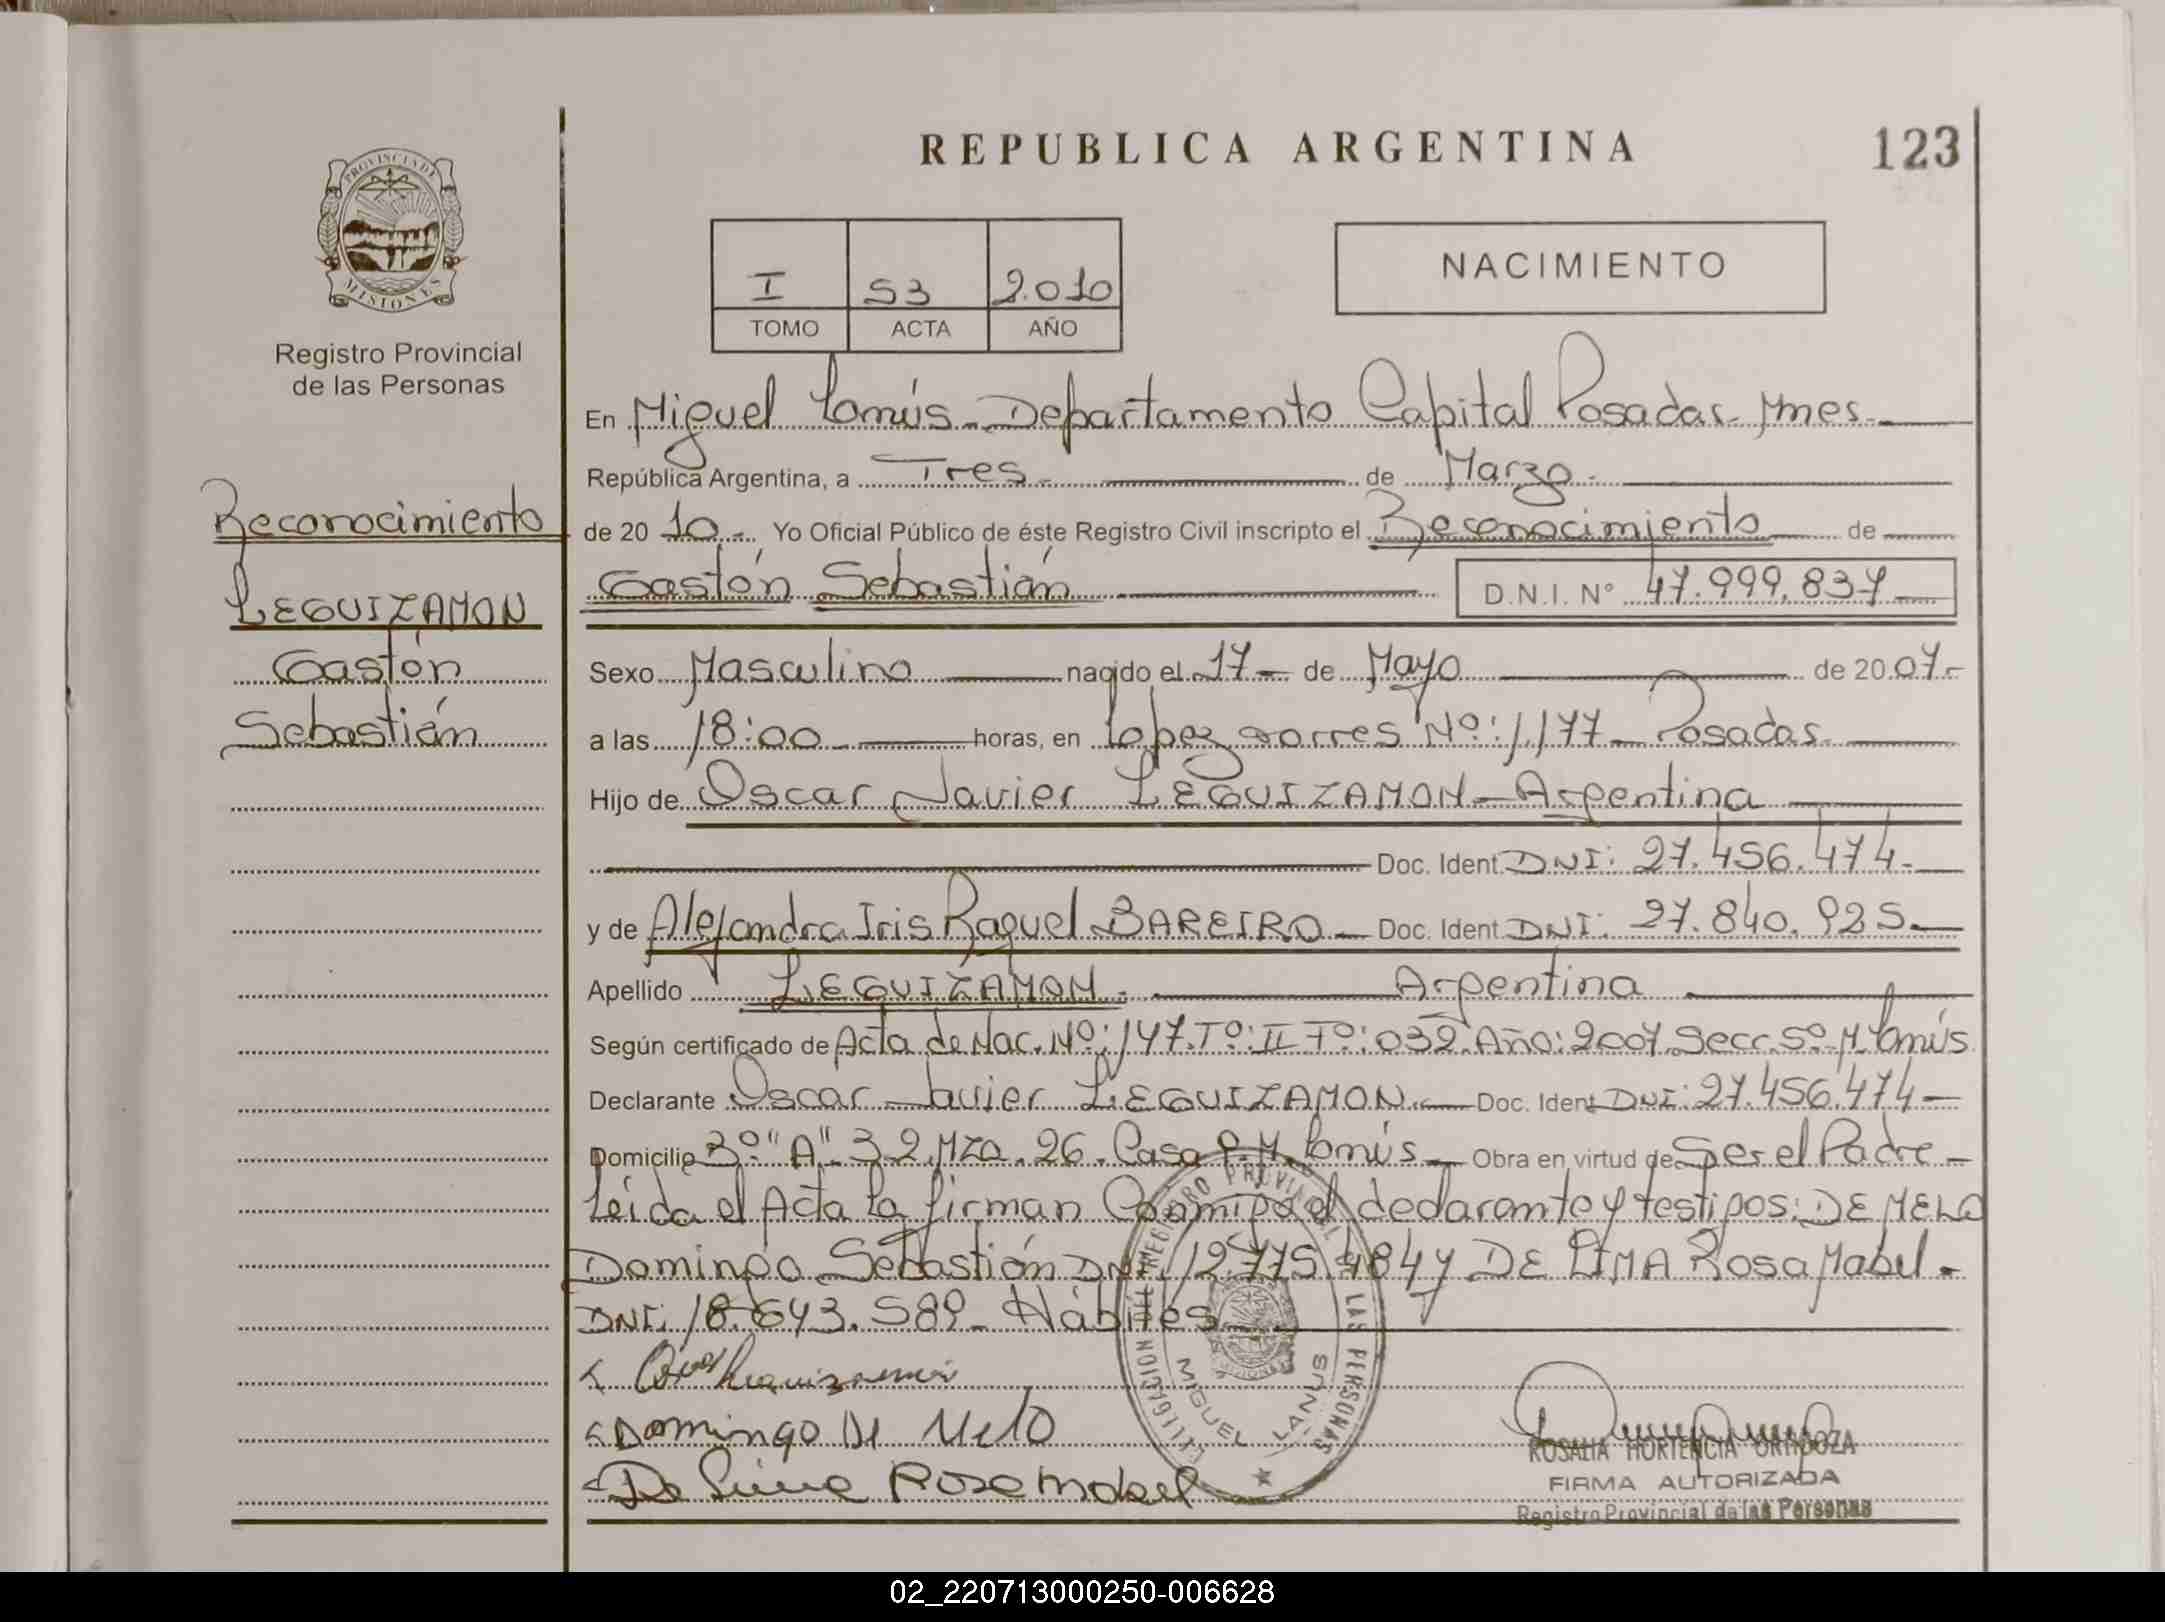 REPUBLICA ARGENTINA
123
PROVINCIA DE
MISIONES
Registro Provincial
de las Personas
I 53 2.010
TOMO ACTA AÑO
NACIMIENTO
Reconocimiento
LEGUIZAMON
Gastón
Sebastián
En Miguel Lanús - Departamento Capital Posadas - Mnes -
República Argentina, a Tres - de Marzo -
de 20 10 - Yo Oficial Público de éste Registro Civil inscripto el Reconocimiento de
Gastón Sebastián D.N.I. N° 47.999.837
Sexo Masculino nacido el 17 - de Mayo de 20 07 -
a las 18:00 - horas, en Lopez Torres Nº: 1.177 - Posadas -
Hijo de Oscar Javier LEGUIZAMON - Argentina
Doc. Ident. DNI: 27.456.474 -
y de Alejandra Iris Raquel BAREIRO - Doc. Ident. DNI: 27.840.925 -
Apellido LEGUIZAMON - Argentina
Según certificado de Acta de Nac. Nº: 147. Tº: II Fº: 032. Año: 2007. Secc. 5º - M. Lanús
Declarante Oscar Javier LEGUIZAMON - Doc. Ident. DNI: 27.456.474 -
Domicilio 3º "A" 32 Mza. 26. Casa 9. M. Lanús - Obra en virtud de Ser el Padre -
Leída el Acta la firman Conmigo el declarante y testigos: DE MELO
Domingo Sebastián DNI. 12.775.484 y DE LIMA Rosa Mabel -
DNI: 18.643.589 - Hábiles
Domingo De Melo
De Lima Rosa Mabel
REGISTRO PROVINCIAL DE LAS PERSONAS
MIGUEL LANUS
ROSALIA HORTENCIA
FIRMA AUTORIZADA
Registro Provincial de las Personas
02_220713000250-006628